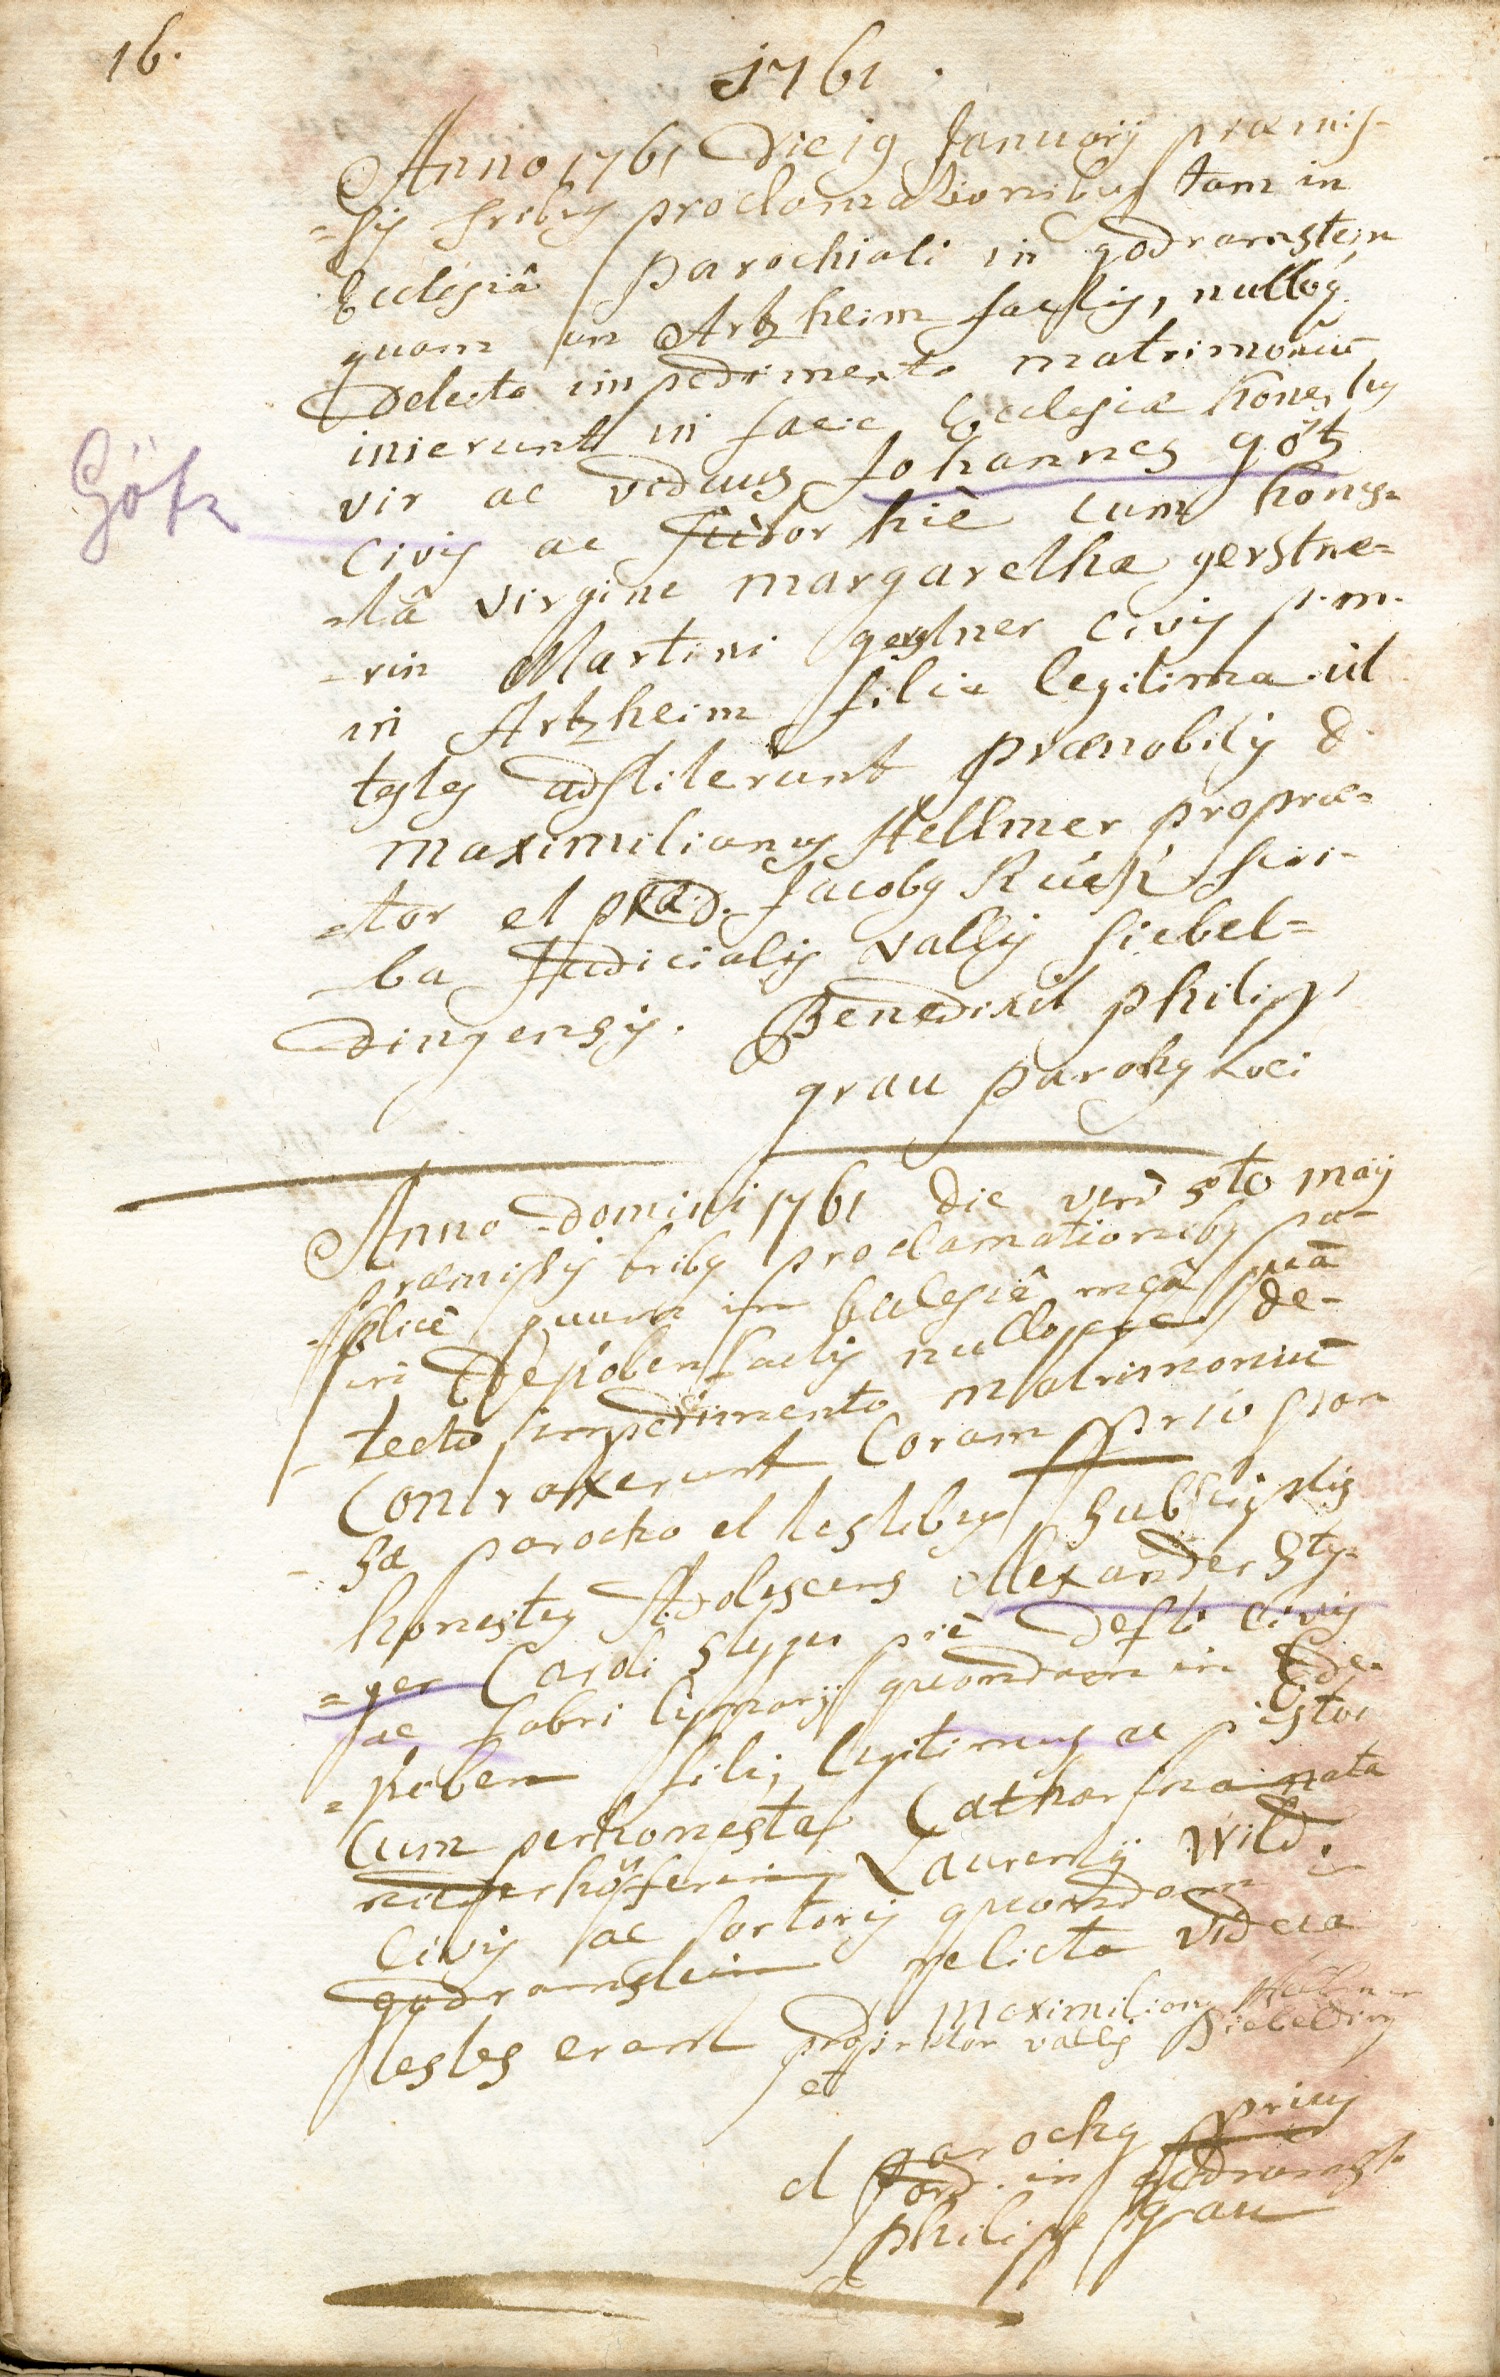 16.
1761.
Anno 1761 Die 19 Januarij præmis-
=sis tribus proclamationibus tam in
Ecclesiâ parochiali in godramstein
quam in Artzheim factis, nulloq
Detecto impedimento matrimoniū
inierunt in facie Ecclesiæ honestus
vir ac viduus Johannes götz
Götz
civis ac sutor hic cum hones-
-tâ virgine margarethæ gerstne=
-rin Martini gerstner civis p. m.
in Artzheim filia legitima. ut
testes adstiterunt prænobilis D.
maximilianus Hellmer propræ=
=tor et præd. Jacobus scri-
-ba Judicialis vallis siebel=
dingensis. Benedixit philipp
grau parochus Loci
Anno domini 1761 die vero 5to maij
præmissis tribus proclamationibus pu-
-blicè quam in Ecclesiâ meâ quā
in factis nulloque de-
-tecto impedimento matrimoniū
Contraxerunt Coram prio
-sæ parocho et testibus subscriptis
honestus Adolescens Alexander Sty-
=ger Caroli Styger piè defti civis
ac fabri lignarij quondam in Ede-
=koben filius legitimus ac pistor
Cum perhonesta Catharina nata
Laurentij Wild
Civis ac sartoris quondam in
godramstein relicta vidua
testes erant maximilianus Hellmer
proprætor vallis Siebelding
et
et parochus prius
ord. in godramst.
philipp grau